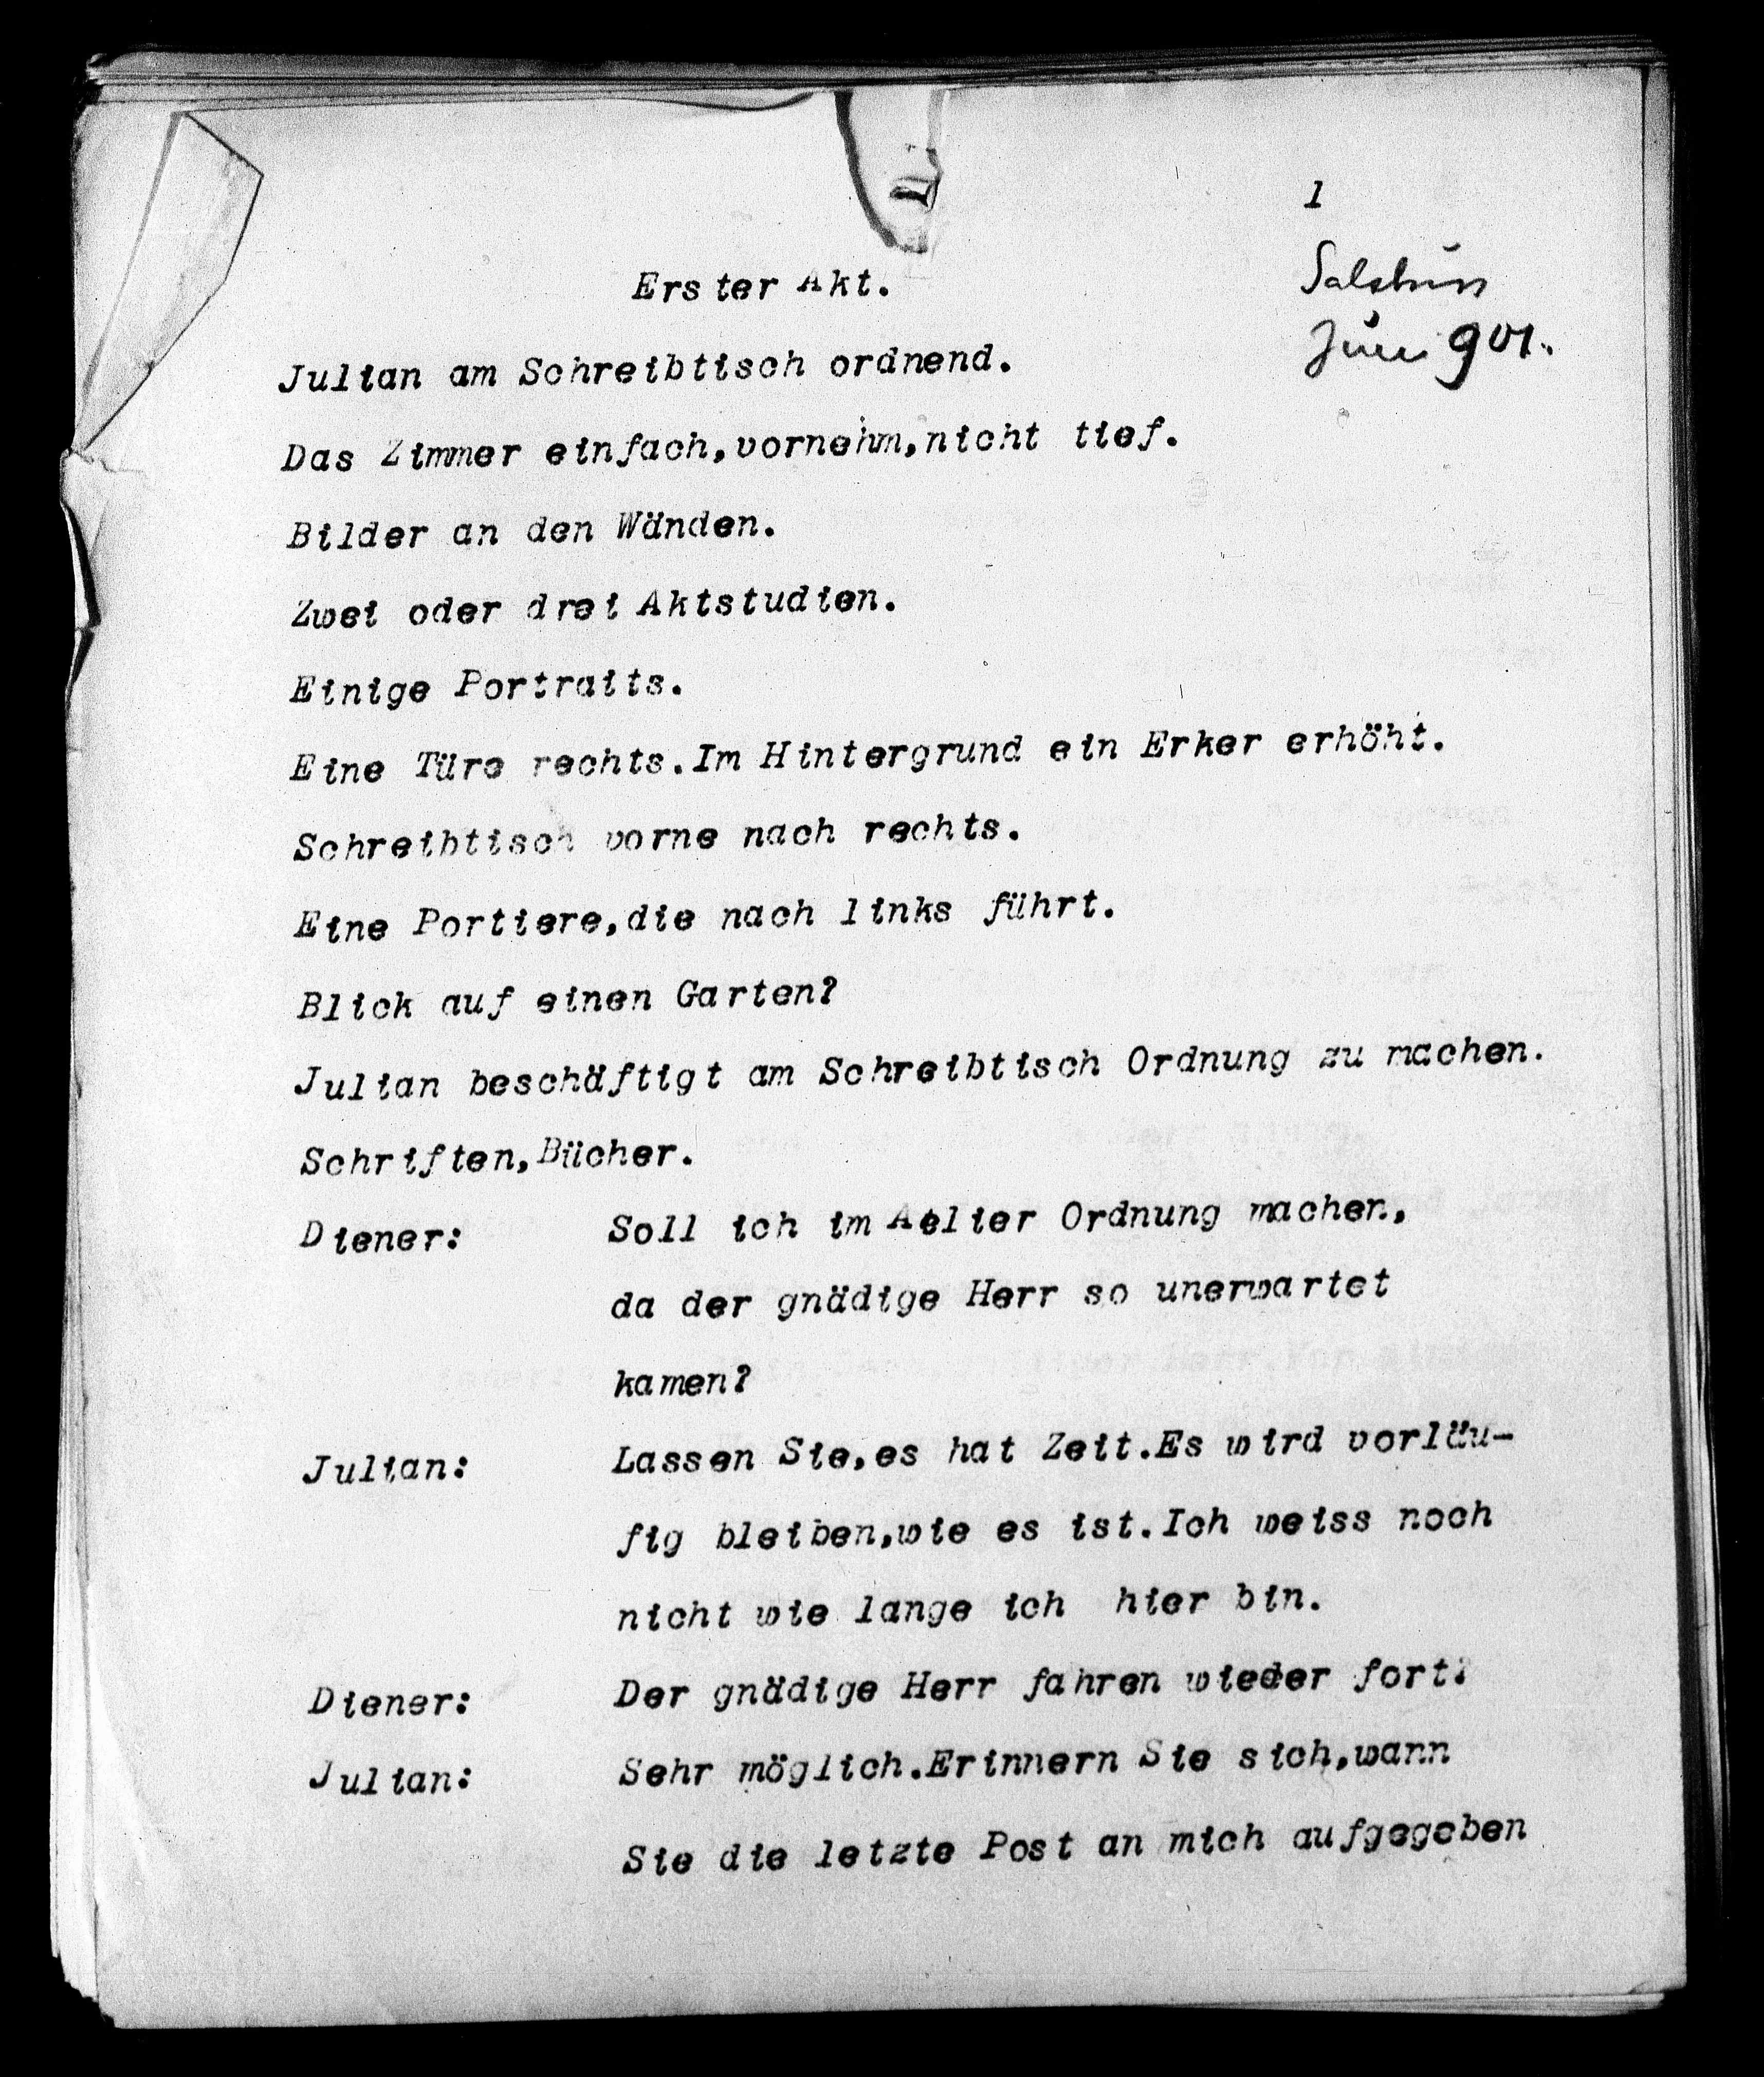 1
Salzburg
Juni 901.
Erster Akt.
Julian am Schreibtisch ordnend.
Das Zimmer einfach,vornehm,nicht tief.
Bilder an den Wänden.
Zwei oder drei Aktstudien.
Einige Portraits.
Eine Türe rechts.Im Hintergrund ein Erker erhöht.
Schreibtisch vorne nach rechts.
Eine Portiere,die nach links führt.
Blick auf einen Garten?
Julian beschäftigt am Schreibtisch Ordnung zu machen.
Schriften,Bücher.
Diener: Soll ich im Atelier Ordnung machen,
da der gnädige Herr so unerwartet
kamen?
Julian: Lassen Sie,es hat Zeit.Es wird vorläu-
fig bleiben,wie es ist.Ich weiss noch
nicht wie lange ich hier bin.
Diener: Der gnädige Herr fahren wieder fort?
Julian: Sehr möglich.Erinnern Sie sich,wann
Sie die letzte Post an mich aufgegeben